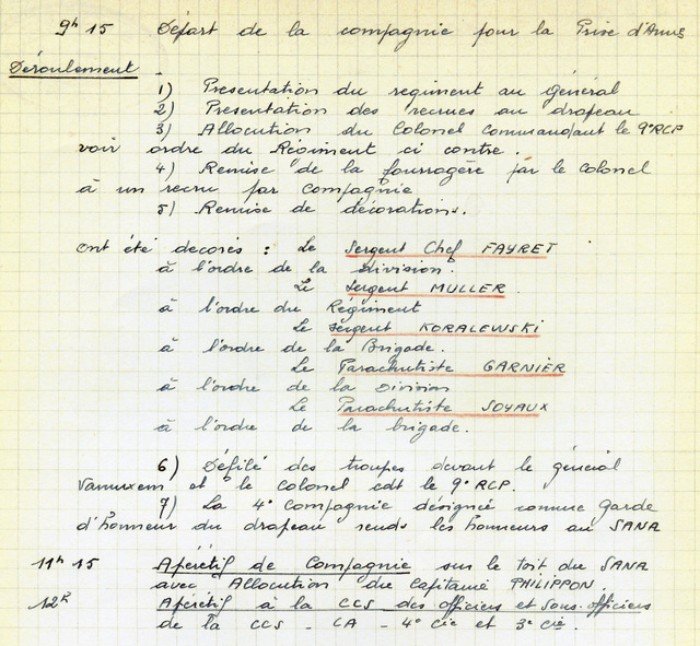 9h 15 Départ de la compagnie pour la Prise d'Armes
Déroulement.
1) Présentation du regiment au général
2) Présentation des recrues au drapeau
3) Allocution du Colonel commandant le 9°RCP
voir ordre du Régiment ci contre.
4) Remise de la fourragère par le colonel
à un recru par compagnie
5) Remise de décorations.
Ont été décorés : Le Sergent Chef FAYRET
à l'ordre de la division.
Le Sergent MULLER
à l'ordre du Régiment
Le Sergent KORALEWSKI
à l'ordre de la Brigade.
Le Parachutiste GARNIER
à l'ordre de la Division
Le Parachutiste SOYAUX
à l'ordre de la brigade.
6) Défilé des troupes devant le général
Vanuxem et le colonel cdt le 9°RCP.
7) La 4° compagnie désignée comme garde
d'honneur du drapeau rends les honneurs au SANA
11h 15 Apéretif de Compagnie sur le toit du SANA
avec Allocution du Capitaine PHILIPPON.
12h Apéretif à la CCS des officiers et sous-officiers
de la CCS - CA - 4° Cie et 3° Cie.